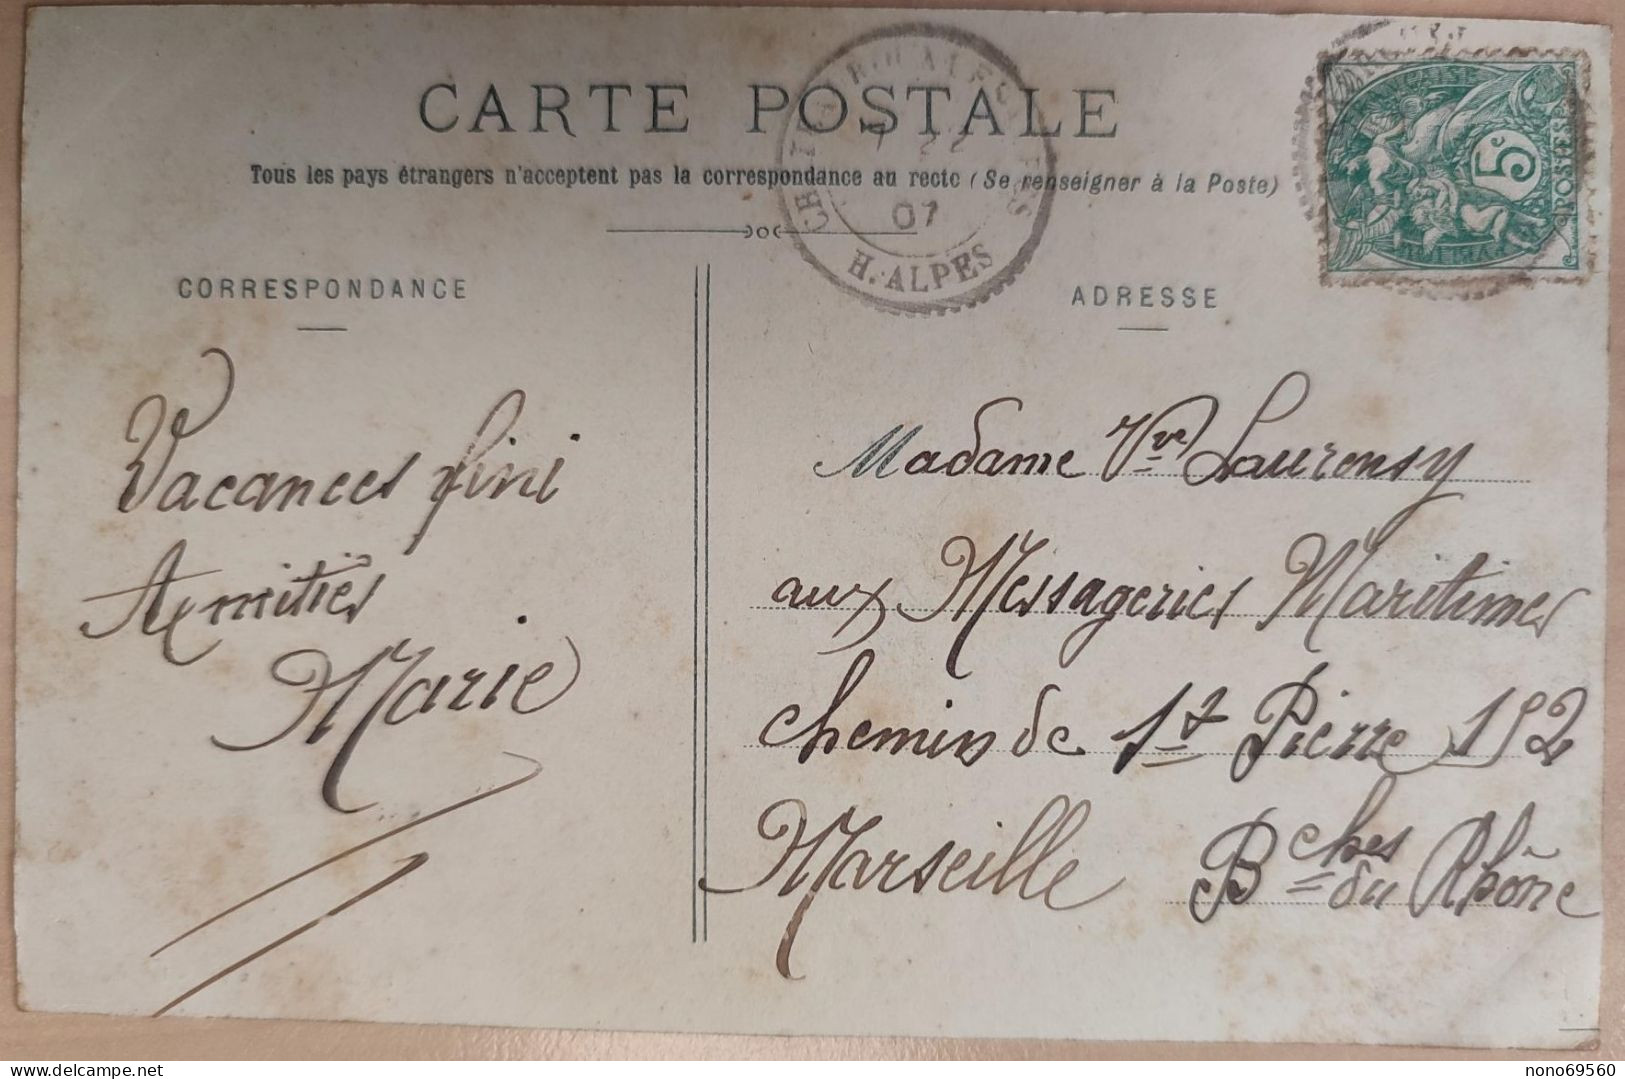 CARTE POSTALE
Tous les pays étrangers n'acceptent pas la correspondance au recto (Se renseigner à la Poste)
07
H.-ALPES
5c
POSTES
CORRESPONDANCE
ADRESSE
Vacances fini
Amitiés
Marie
Madame Vve Laurensy
aux Messageries Maritimes
chemin de St Pierre 152
Marseille Bches du Rhône
nono69560